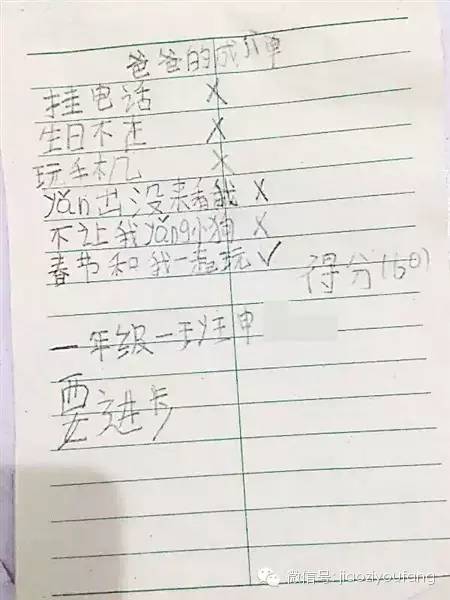 爸爸的成绩单
挂电话 ×
生日不在 ×
玩手机 ×
yǎn出没来看我 ×
不让我yǎng小狗 ×
春节和我一起玩 ✓
得分(60)
一年级一班汪申
要进步
微信号: jiaoziyoufang